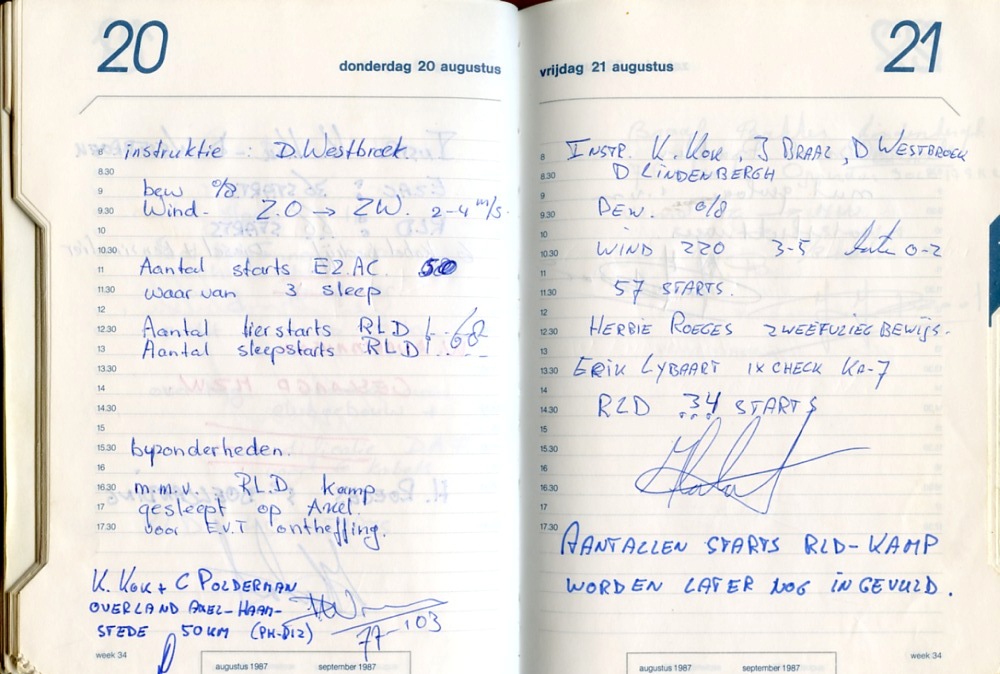 20
donderdag 20 augustus
8 instruktie : D. Westbroek.
8.30
9 bew 0/8
9.30 Wind - Z.O → ZW. 2-4 m/s.
10
10.30 Aantal starts EZ.AC. 50
11
11.30 waar van 3 sleep
12
12.30 Aantal lierstarts RLD 68
13 Aantal sleepstarts RLD
13.30
14
14.30
15
15.30 byzonderheden.
16
16.30 m.m.v. RL.D. kamp
17 gesleept op Axel.
17.30 voor E.V.T ontheffing.
K. KOK + C POLDERMAN
OVERLAND AXEL-HAAM-
STEDE 50 KM (PH-DIZ)
77-103
week 34
augustus 1987 september 1987
21
vrijdag 21 augustus
8 INSTR. K. KOK, J BRAAL, D WESTBROEK
8.30 D LINDENBERGH
9
9.30 BEW. 0/8
10
10.30 WIND 220 3-5 later 0-2
11
11.30 57 STARTS.
12
12.30 HERBIE ROEGES ZWEEFVLIEGBEWIJS.
13
13.30 ERIK LYBAART 1X CHECK KA-7
14
14.30 RLD 34 STARTS
15
15.30
16
16.30
17
17.30
AANTALLEN STARTS RLD-KAMP
WORDEN LATER NOG INGEVULD.
week 34
augustus 1987 september 1987